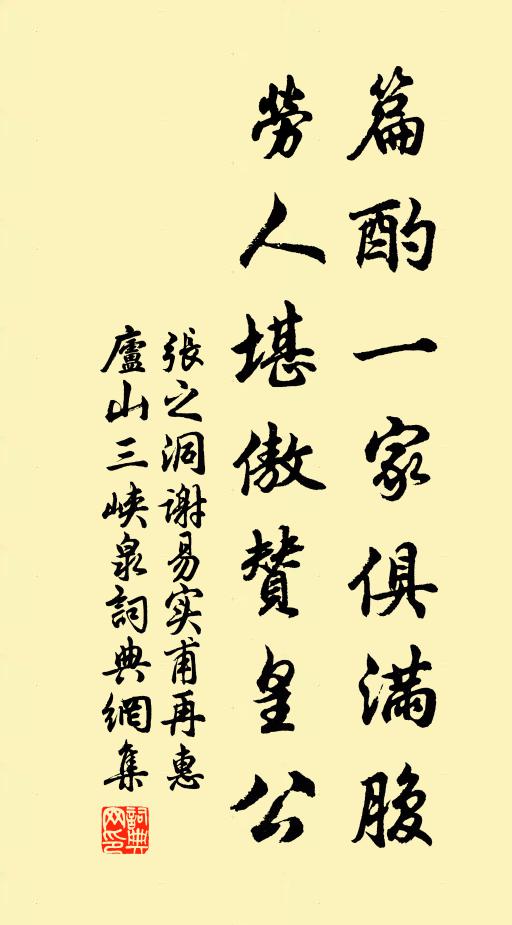 篇酌一家俱满腹
勞人堪傲賛皇公
張之洞谢易实甫再惠
廬山三峡泉詞典網集
詞典網印